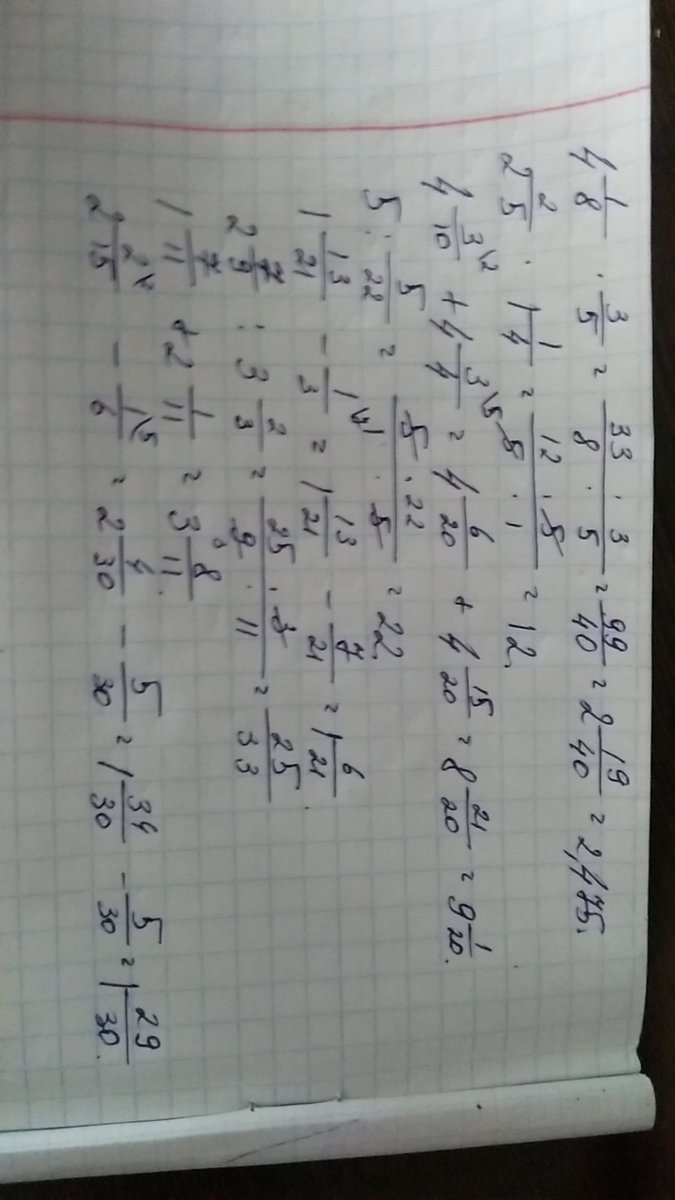 4 1/8 · 3/5 = (33 · 3)/(8 · 5) = 99/40 = 2 19/40 = 2,475.
2 2/5 · 1 1/4 = (12 · 5)/(5 · 1) = 12.
4 3\2/10 + 4 3\5/4 = 4 6/20 + 4 15/20 = 8 21/20 = 9 1/20.
5 : 5/22 = (5 · 22)/(1 · 5) = 22.
1 13/21 - 1\7/3 = 1 13/21 - 7/21 = 1 6/21.
2 7/9 : 3 2/3 = (25 · 3)/(9 · 11) = 25/33
1 7/11 + 2 1/11 = 3 8/11.
2 2\2/15 - 1\5/6 = 2 4/30 - 5/30 = 1 34/30 - 5/30 = 1 29/30.